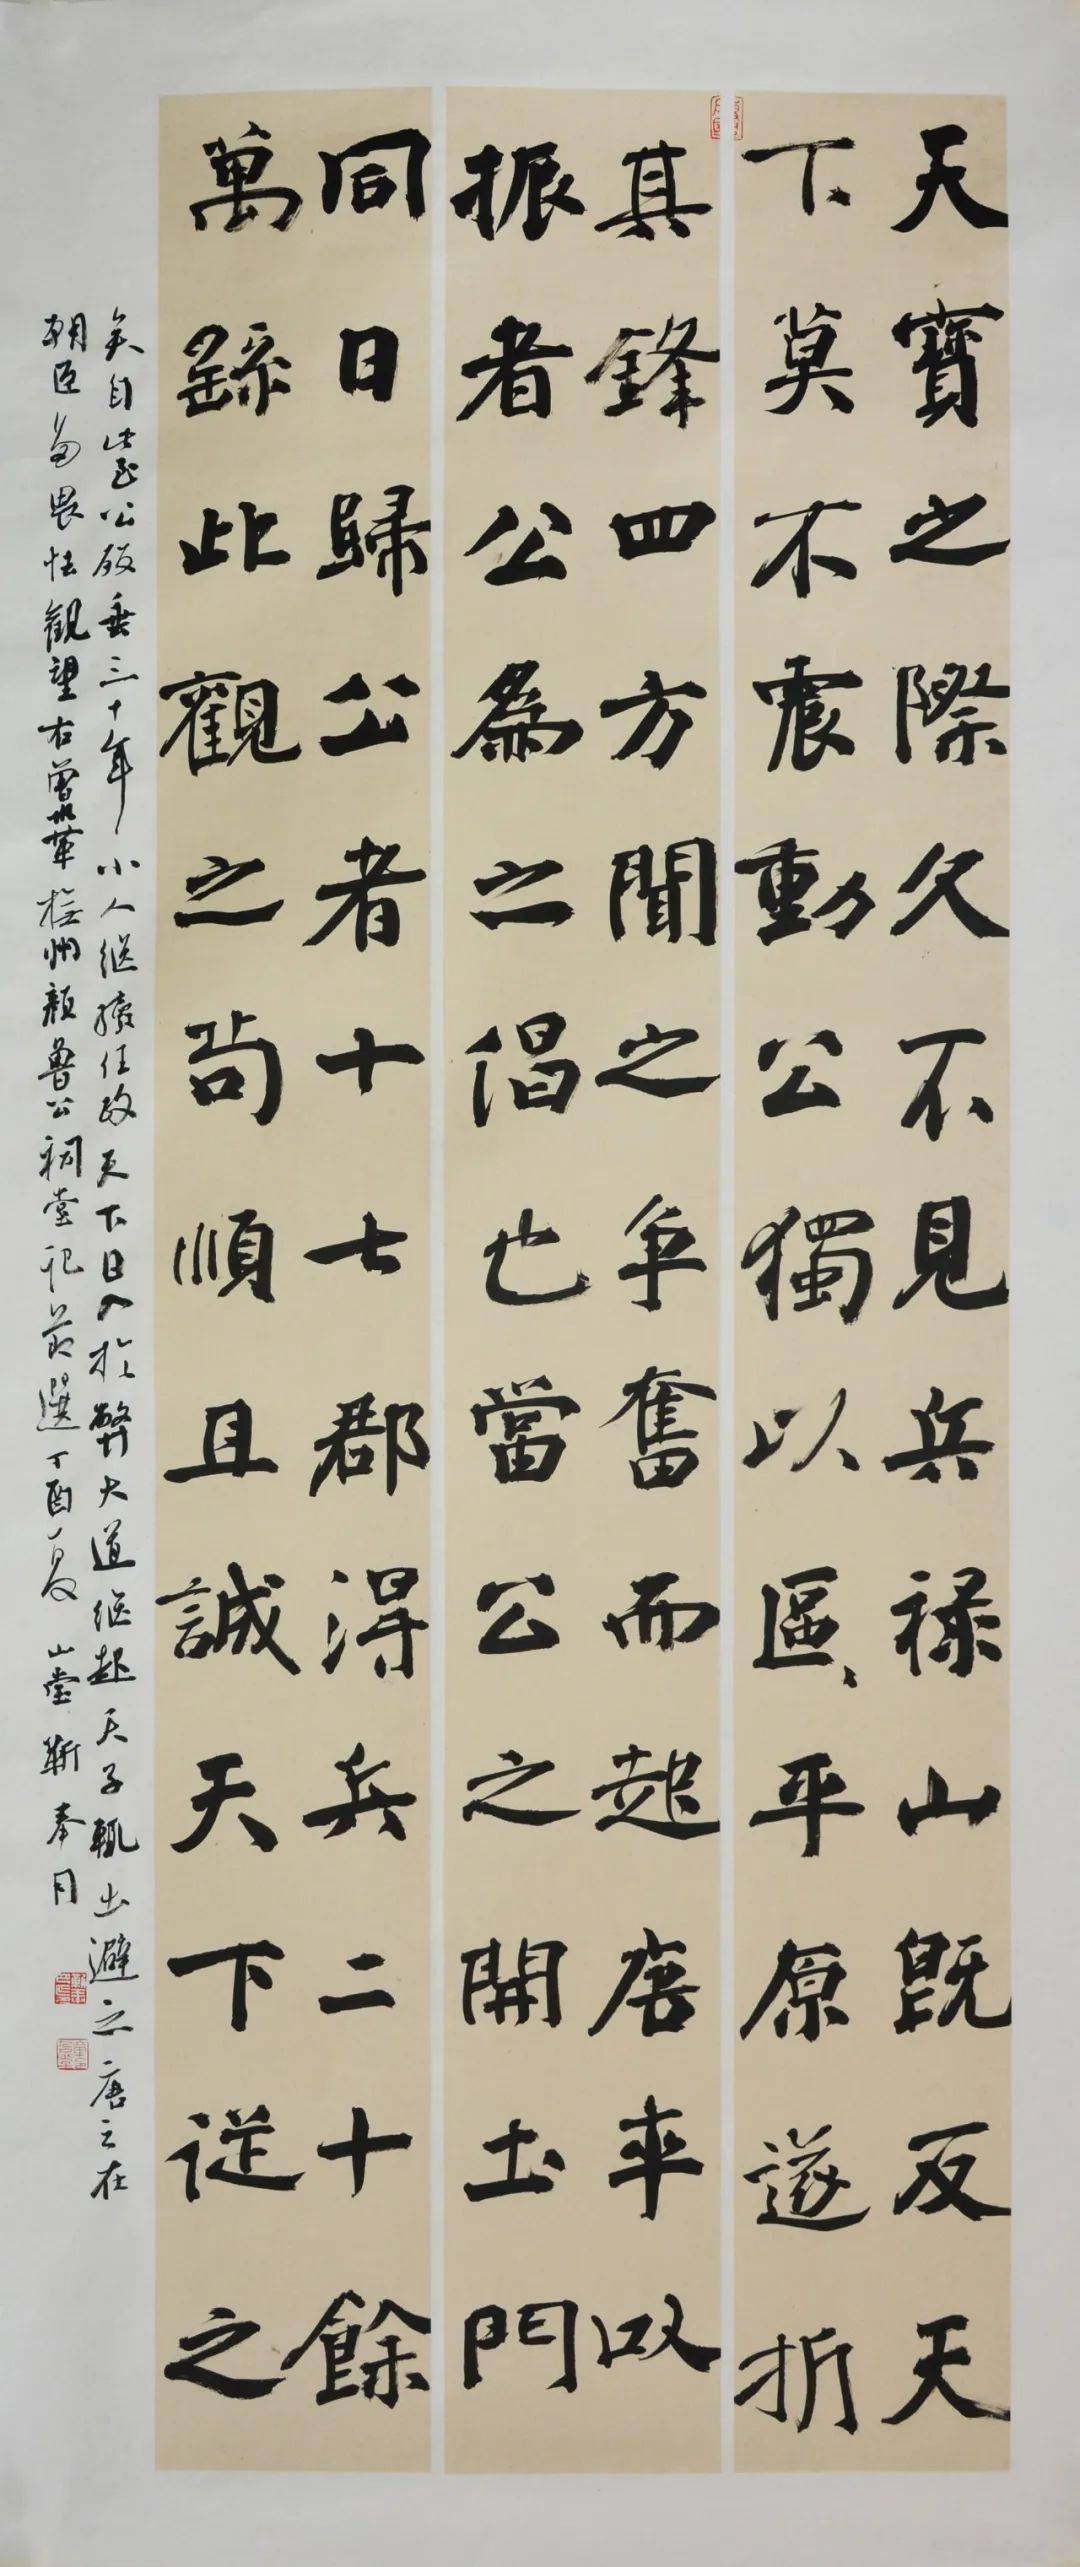 天寶之際久不見兵禄山既反天
下莫不震動公獨以區、平原遂折
其鋒四方聞之爭奮而起唐率以
振者公為之倡也當公之開土門
同日歸公者十七郡得兵二十餘
萬繇此觀之苟順且誠天下從之
矣自此至公歿垂三十年小人继续任政天下日入於弊大道继起天子輒出避之唐之在
朝臣多畏怯觀望右曾鞏撫州顏魯公祠堂記節選丁酉夏山堂靳奉月